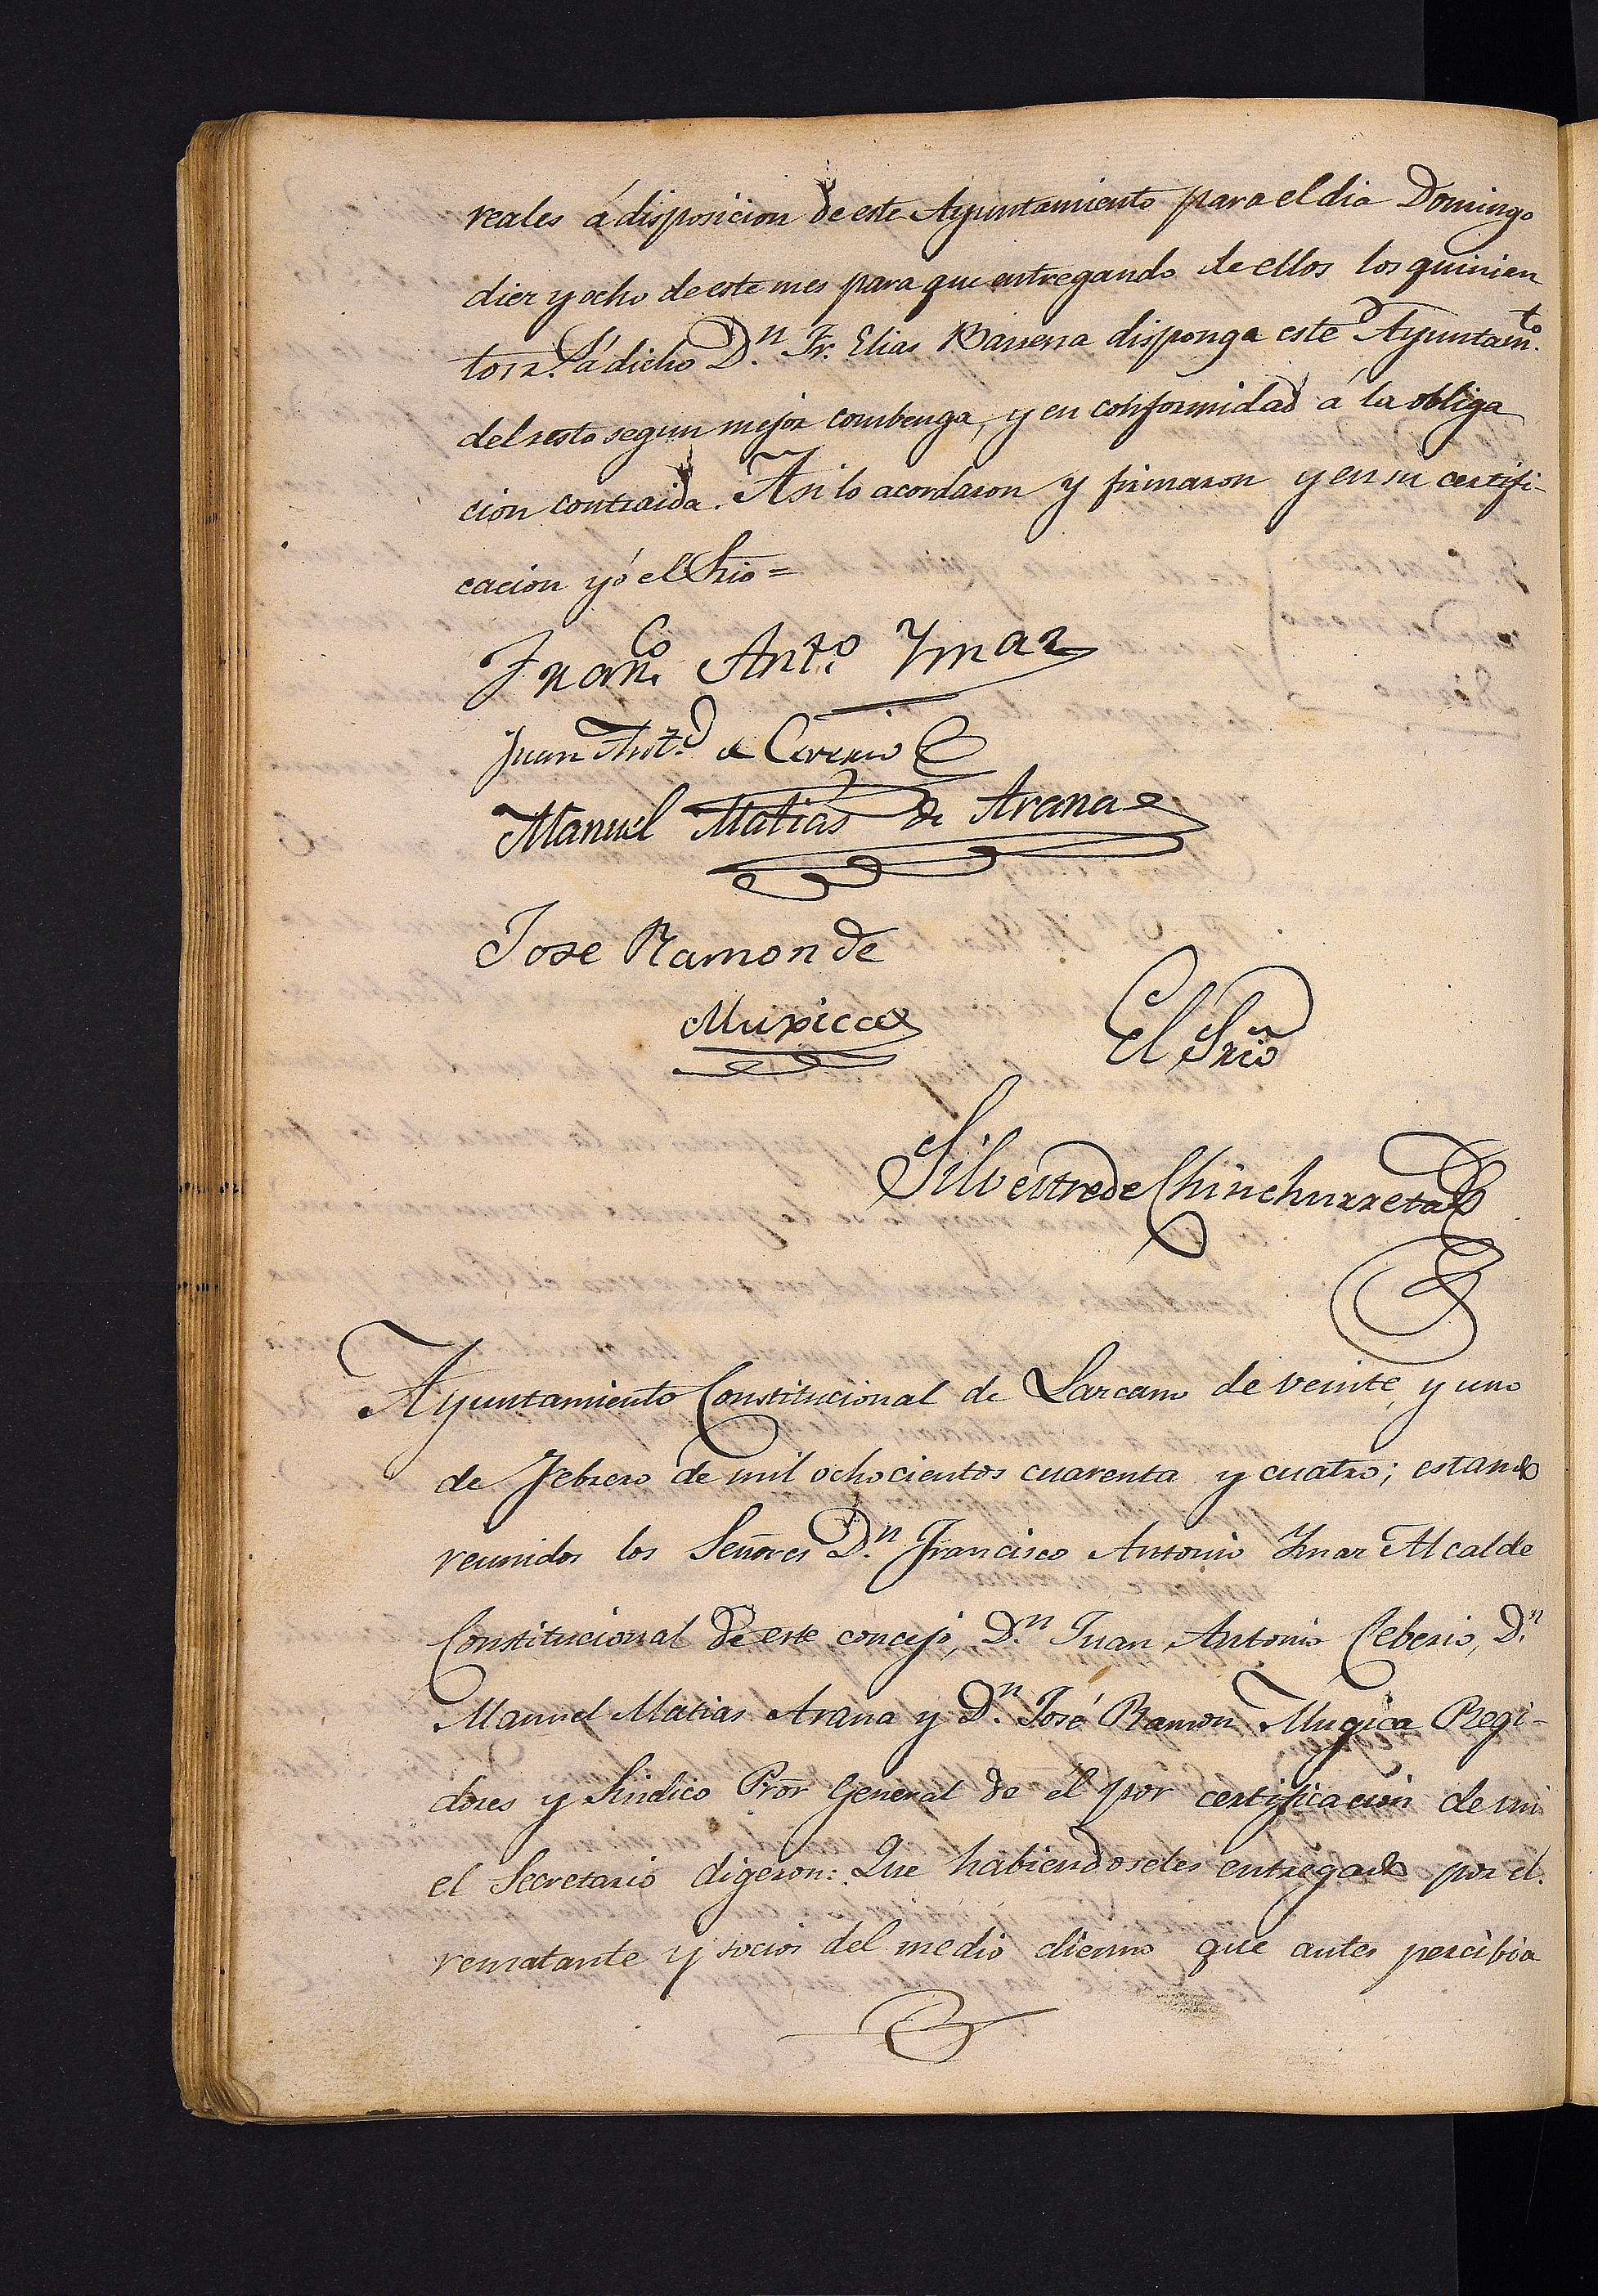 reales á disposicion de este Ayuntamiento para el dia Domingo
diez y ocho de este mes para que entregando de ellos los quinien
tos r.s á dicho D.n Fr. Elias Barrena disponga este Ayuntam.to
del resto segun mejor combenga, y en conformidad á la obliga
cion contraida. Asi lo acordaron y firmaron y en su certifi-
cacion yó el Srio=
Fran.co Ant.o Ymaz
Juan Ant.o de Ceverio
Manuel Matias de Arana
Jose Ramon de
Muxica
El Srio
Silvestre de Chinchurreta
Ayuntamiento Constitucional de Lazcano de veinte y uno
de Febrero de mil ochocientos cuarenta y cuatro; estando
reunidos los Señores D.n Francisco Antonio Ymaz Alcalde
Constitucional de este concejo, D.n Juan Antonio Ceberio, D.n
Manuel Matias Arana y D.n José Ramon Mugica Regi-
dores y Sindico Pror General de él por certificacion de mi
el Secretario digeron: Que habiendoseles entregado por el
rematante y socios del medio diezmo que antes percibia